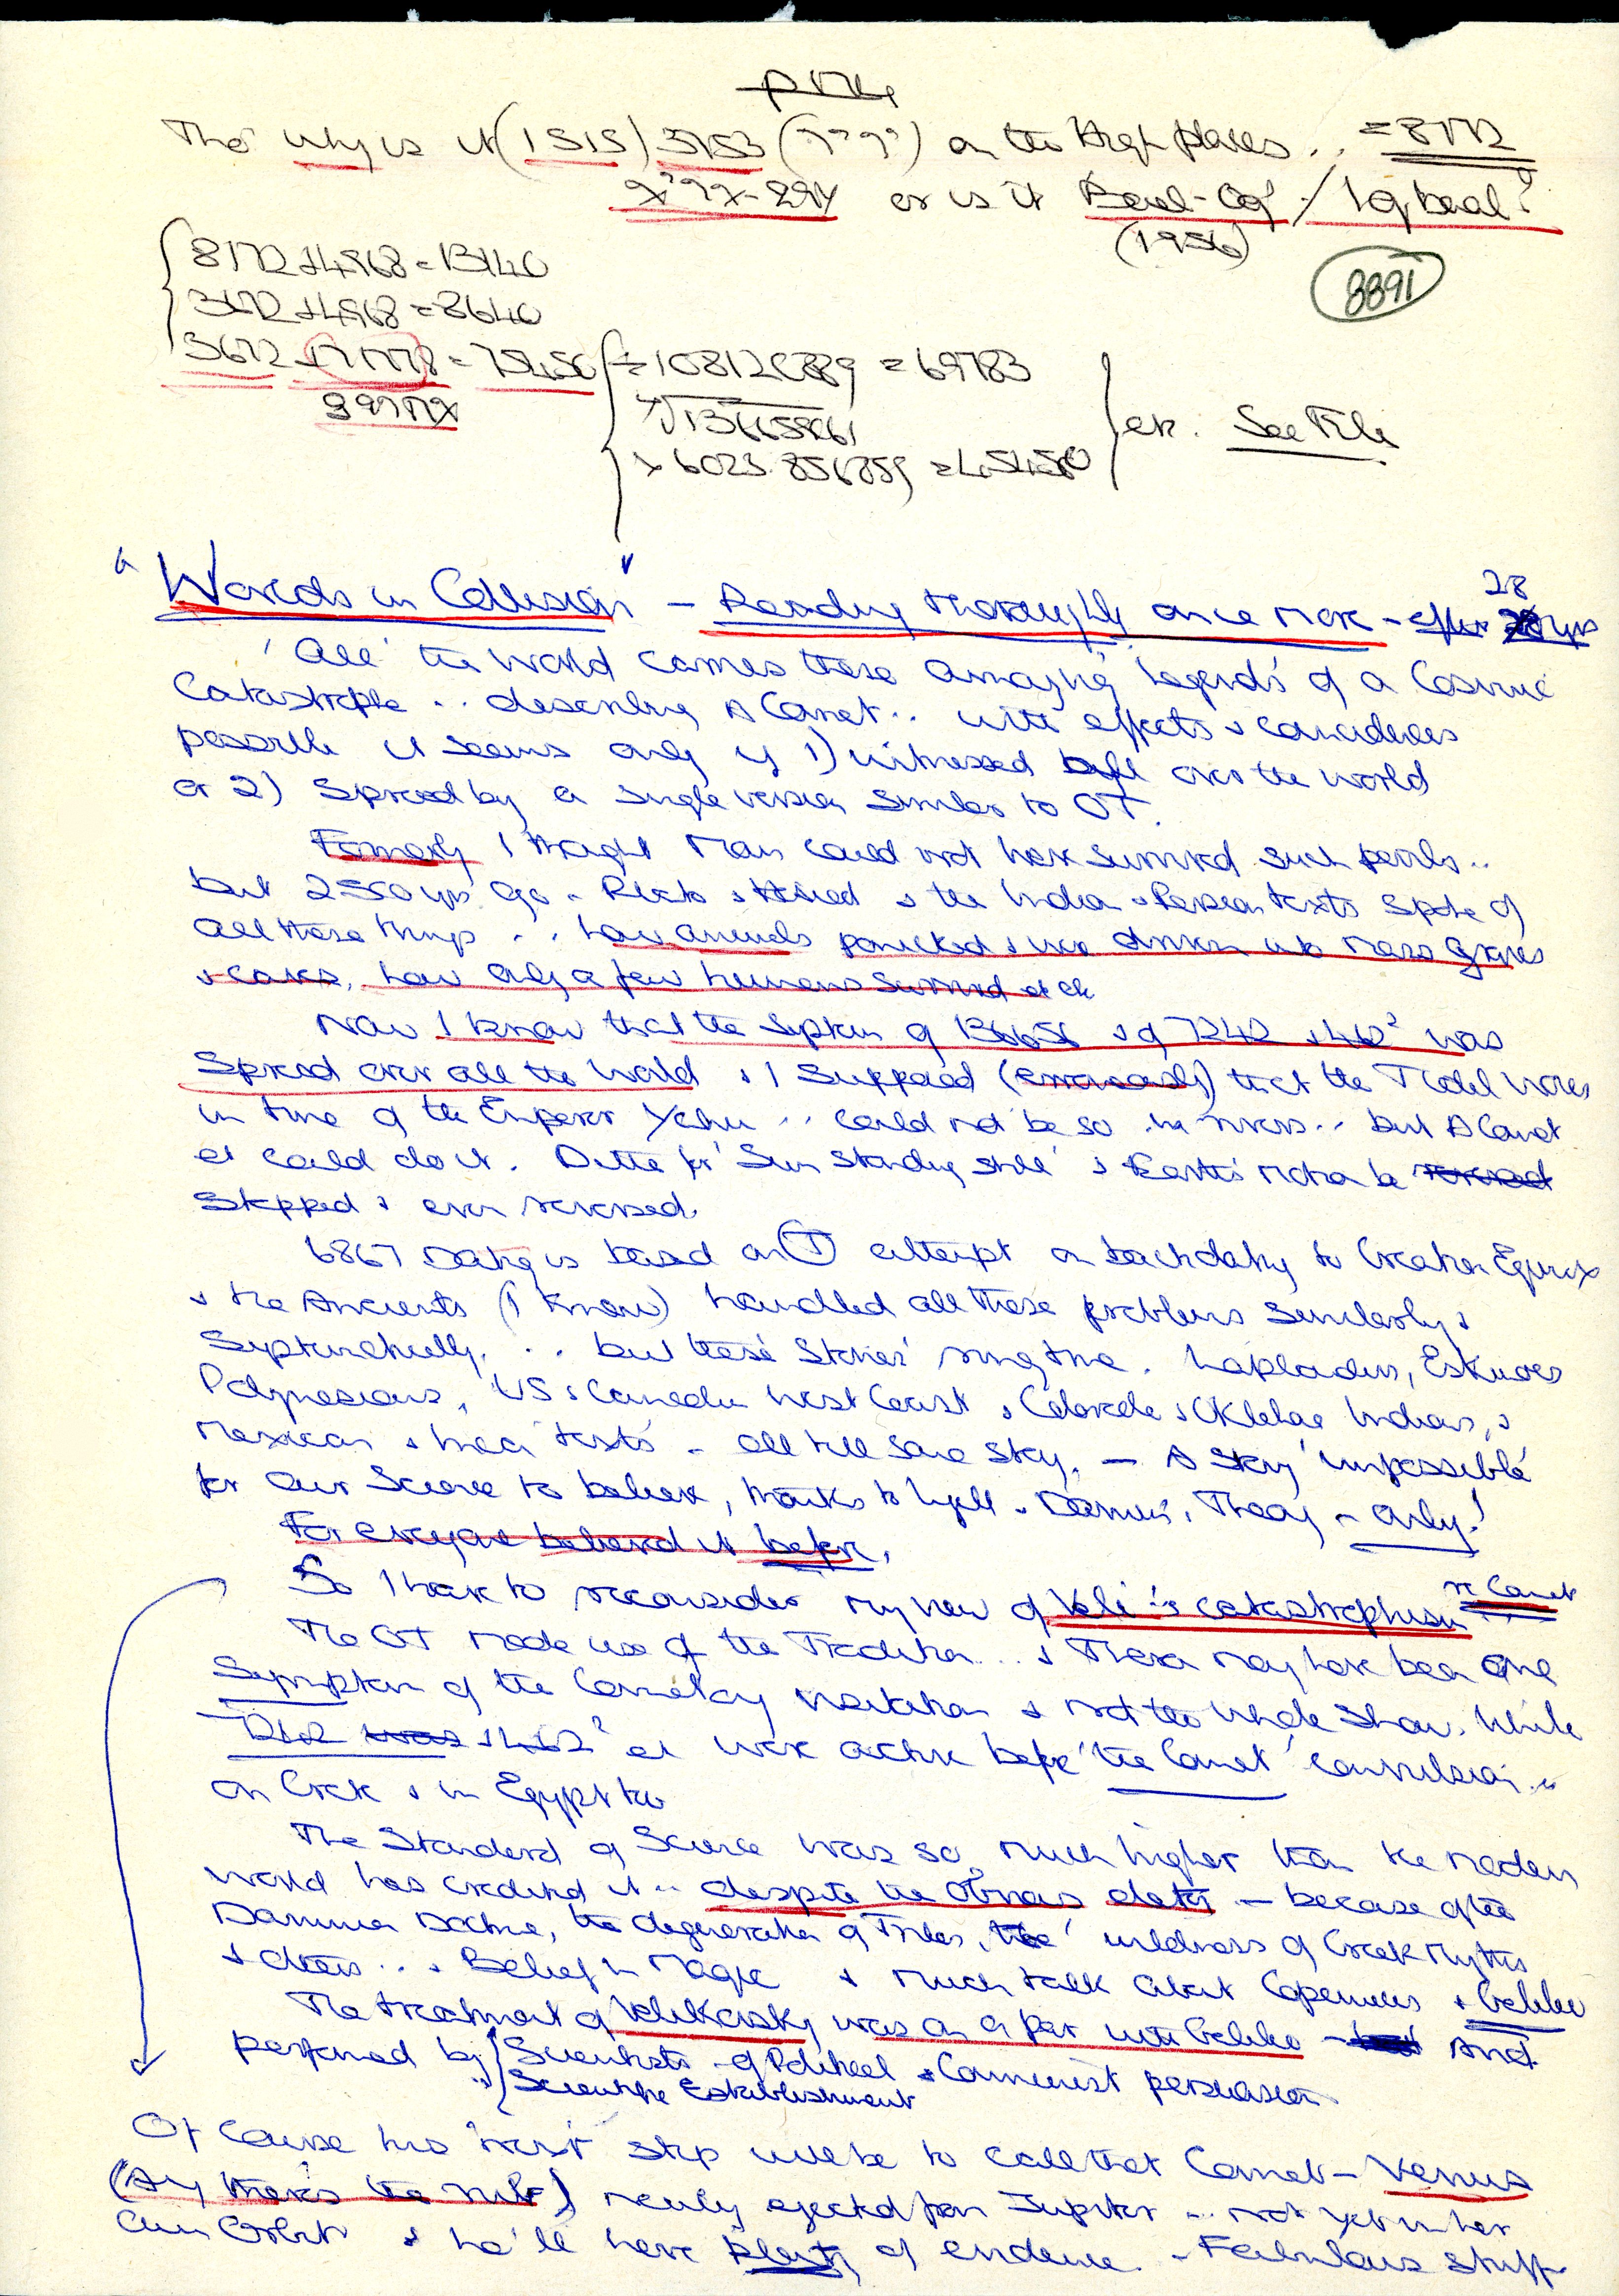 Tho' why is it (1515) 3753 (????) on the High places .. = 8772
or is it Baal-Og / Iqbaal?
(1956)
8891
8172 + 4968 = 13140
3672 + 4968 = 8640
3672 = 75450 ÷ = 69783
√13665861
x 6023.856859 = 454580
etc. See File
"Words in Collision" – Reading thoroughly once more – after 28 yrs
'All' the World comes these amazing legends of a Cosmic
Catastrophe .. describing A Comet .. with effects & coincidences
possible it seems only if 1) witnessed all over the world
or 2) Spread by a single version similar to OT.
Formerly I thought Man could not have survived such perils ..
but 2500 yrs ago - Plato & Hesiod & the Indian & Persian texts spoke of
all these things .. how animals panicked & were driven into mass graves
& caves, how only a few humans survived et etc
Now I know that the System of 13656 & of 7242 & 462² was
Spread over all the World & I supposed (erroneously) that the Tidal Waves
in time of the Emperor Yahu .. could not be so .. but A Comet
et could do it. Ditto for 'Sun Standing still' & Earth's motion be
stopped & even reversed.
6867 Dating is based on attempt on backdating to Creation Equinox
& the Ancients (I know) handled all these problems similarly &
Systematically. .. but these 'Stories' ring true. Laplanders, Eskimoes
Polynesians, US & Canadian West Coast & Colorado & Oklahoma Indians, &
Mexican & Inca texts - all tell same story. – A Story 'impossible'
for Our Science to believe, thanks to Lyell & Darwin's Theory – only!
For everyone believed it before.
So I have to reconsider my view of Veli's catastrophism re Comet
The OT made use of the Tradition ... & Thera may have been one
Symptom of the Cometary visitation & not the whole show. While
et were active before 'the Comet' convulsion ..
on Crete & in Egypt too
The Standard of Science was so much higher than the modern
World has credited it .. despite the obvious data – because of the
Darwinian Doctrine, the degeneration of Tribes, the 'wildness of Greek Myths
& others .. & Belief in Magic & much talk about Copernicus & Galileo
The treatment of Velikovsky was on a par with Galileo – And
performed by Scientists – of Political & Communist persuasion
Scientific Establishment
Of course his 'next' step will be to call that Comet – Venus
(Ay there's the rub) newly ejected from Jupiter .. not yet in her
own Orbit & he'll have plenty of evidence. – Fabulous stuff.